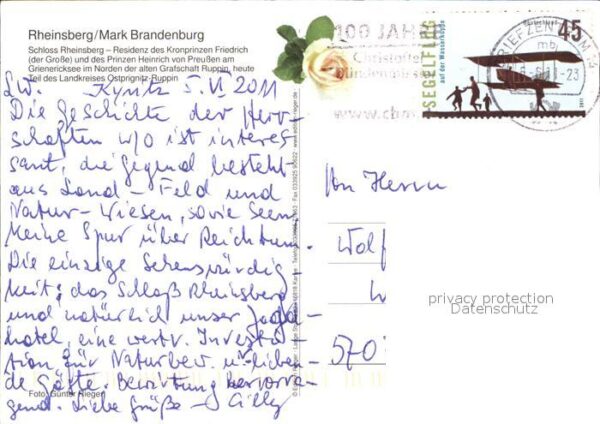 Rheinsberg/Mark Brandenburg
Schloss Rheinsberg – Residenz des Kronprinzen Friedrich
(der Große) und des Prinzen Heinrich von Preußen am
Grienericksee im Norden der alten Grafschaft Ruppin, heute
Teil des Landkreises Ostprignitz-Ruppin
LW. Kyritz 5. VI 2011
Die Geschichte der Herr-
schaften w/o ist interes
sant, die Gegend besteht
aus Land – Feld und
Natur – Wiesen, sowie Seen
Keine Spur über Reichtum.
Die einzige Sehenswürdig
keit: das Schloß Rheinsberg
und natürlich unser Jagd-
hotel, eine wertv. Investi-
tion für Naturbew. u. lieben-
de Gäste. Bewirtung hervorra-
gend. Liebe Grüße – Cilly
Foto: Günter Rieger
100 JAHRE
Christoffel
Blindenmission
www.cbm
SEGELFLUG
auf der Wasserkuppe
Deutschland
45
2011
BRIEFZENTRUM
mb
-23
Von Herrn
Wolf
W
570
privacy protection
Datenschutz